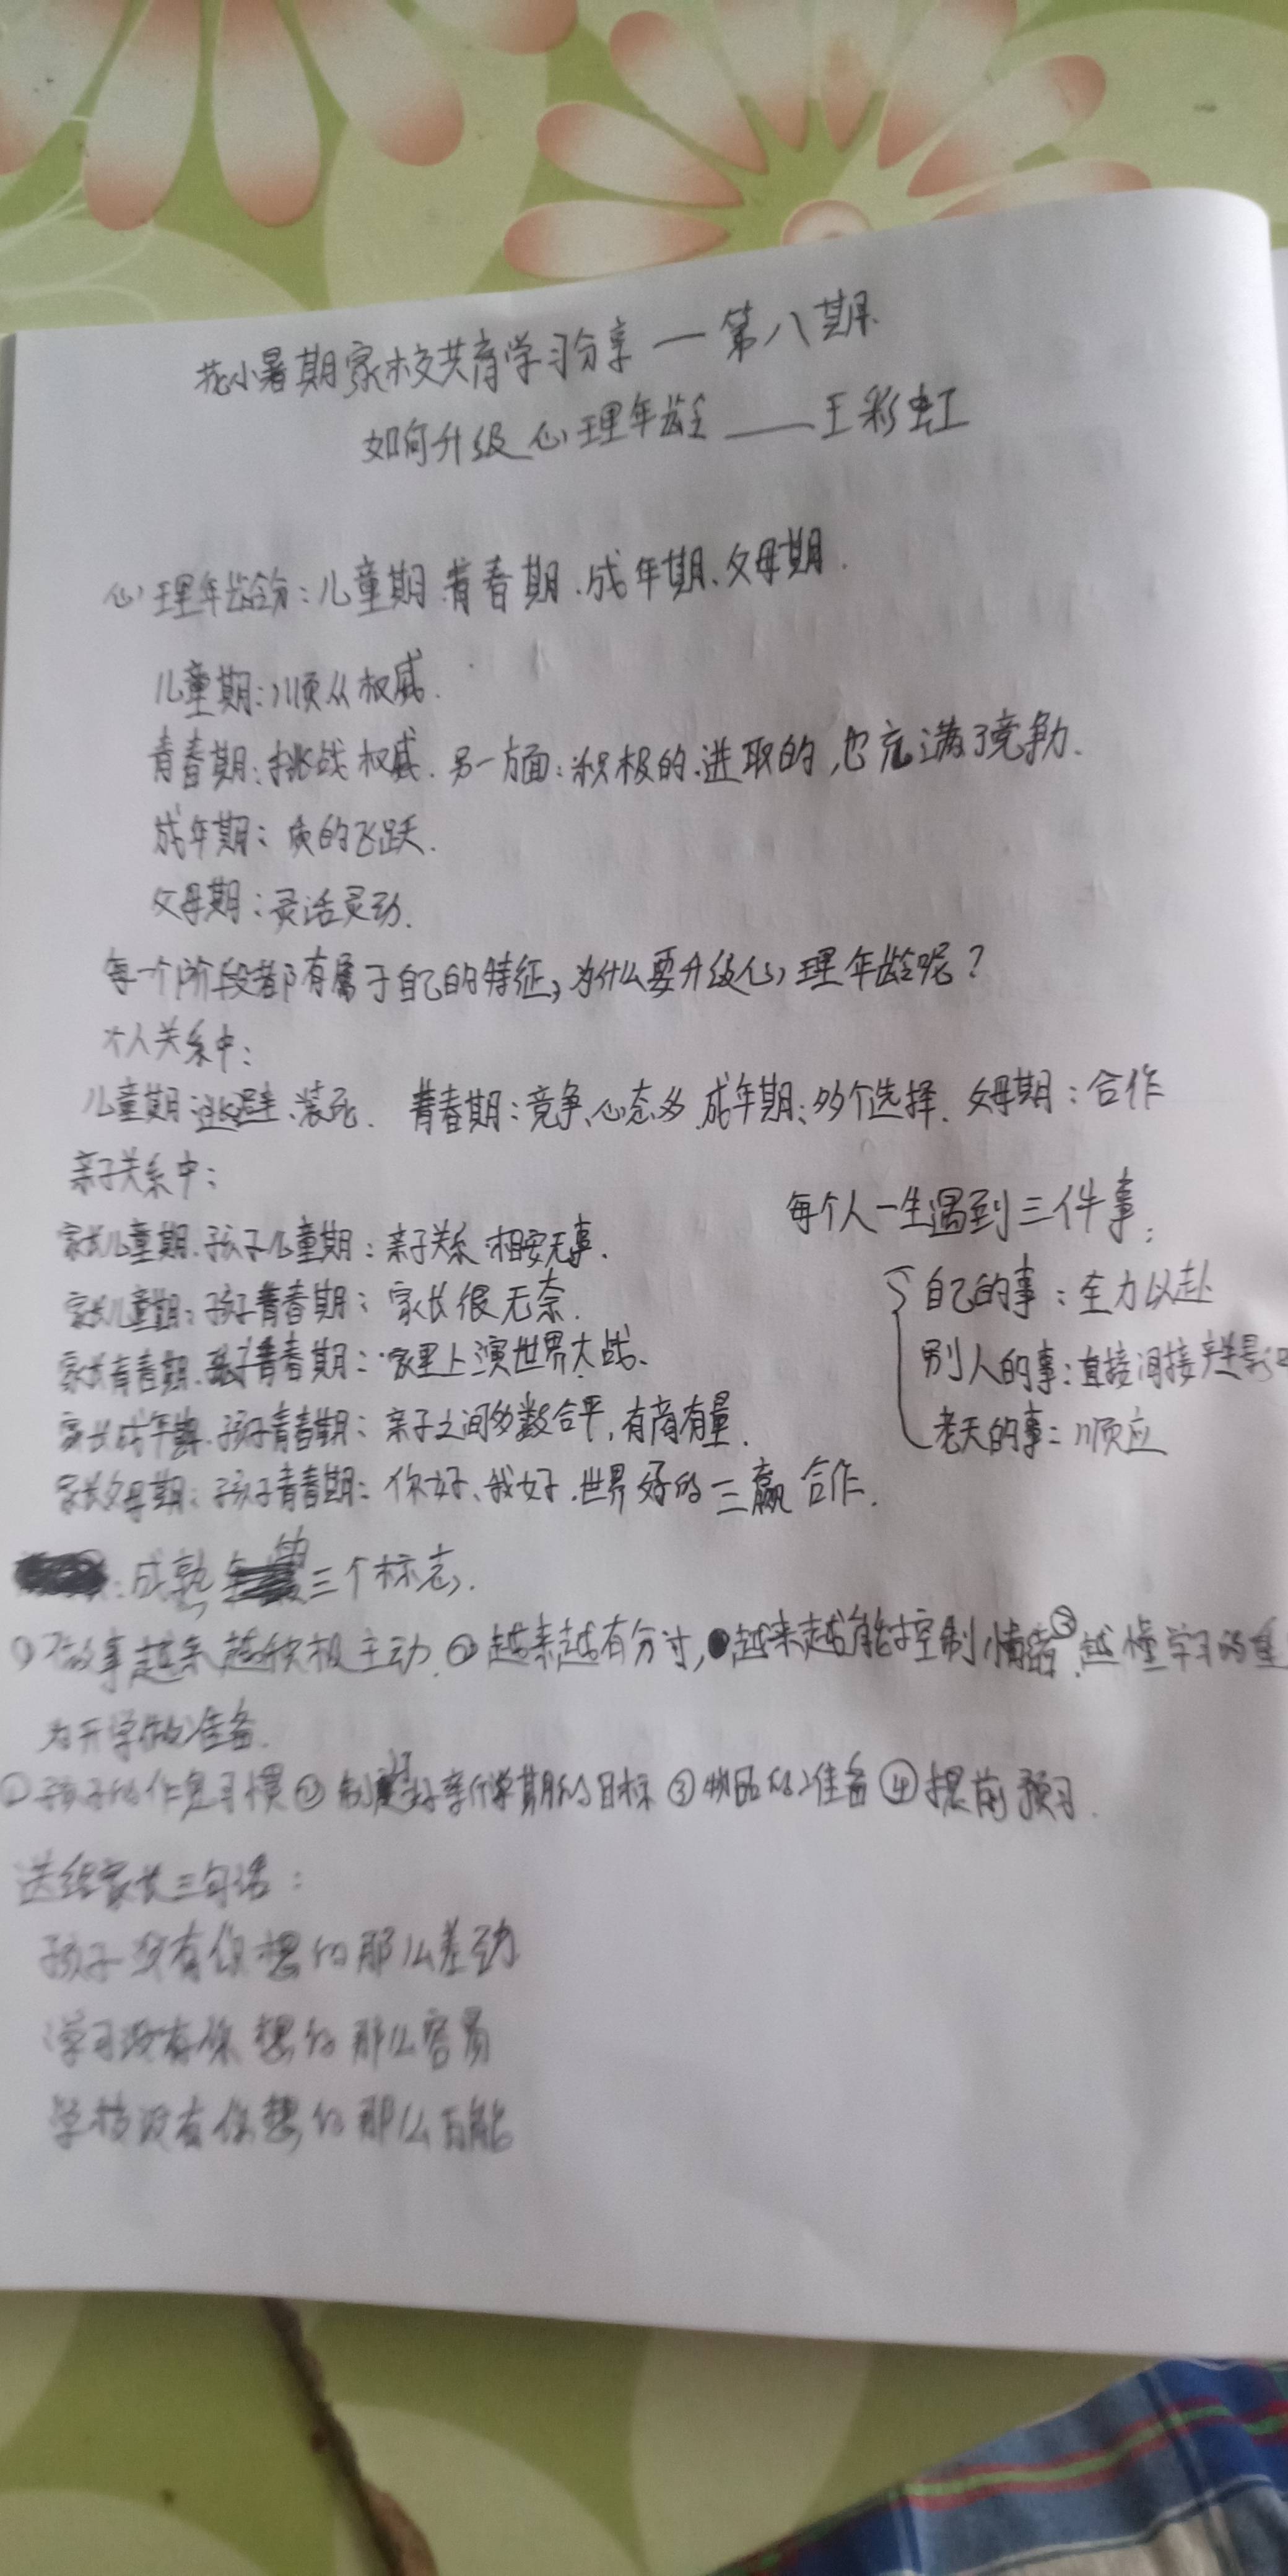 花小暑期家校共育学习分享一第八期.
如何升级心理年龄——王彩虹
心理年龄分:儿童期.青春期.成年期、父母期.
儿童期:顺从权威.
青春期:挑战权威.另一方面:积极的.进取的,也充满了竞争力.
成年期:质的飞跃.
父母期:灵活灵动.
每个阶段都有属于自己的特征,为什么要升级心理年龄呢?
大人关系中:
儿童期:逃避、装死. 青春期:竞争、心态多.成年期:多个选择. 父母期:合作
亲子关系中:
家长儿童期.孩子儿童期:亲子关系相安无事.
家长儿童期:孩子青春期:家长很无奈.
家长青春期.孩子青春期:家里上演世界大战、
家长成年期.孩子青春期:亲子之间多数合平,有商有量.
家长父母期:孩子青春期:你好、我好.世界好的三赢合作.
每个人一生遇到三件事:
自己的事:全力以赴
别人的事:直接间接产生影
老天的事:顺应
:成熟的三个标志.
①做事越来越积极主动.②越来越有分寸,越来越能控制情绪③.越懂学习的重
为开学做准备.
①孩子的作息习惯②制定好新学期的目标③物品的准备④提前预习.
送给家长三句话:
孩子没有你想的那么差劲
学习没有你想的那么容易
学校没有你想的那么万能